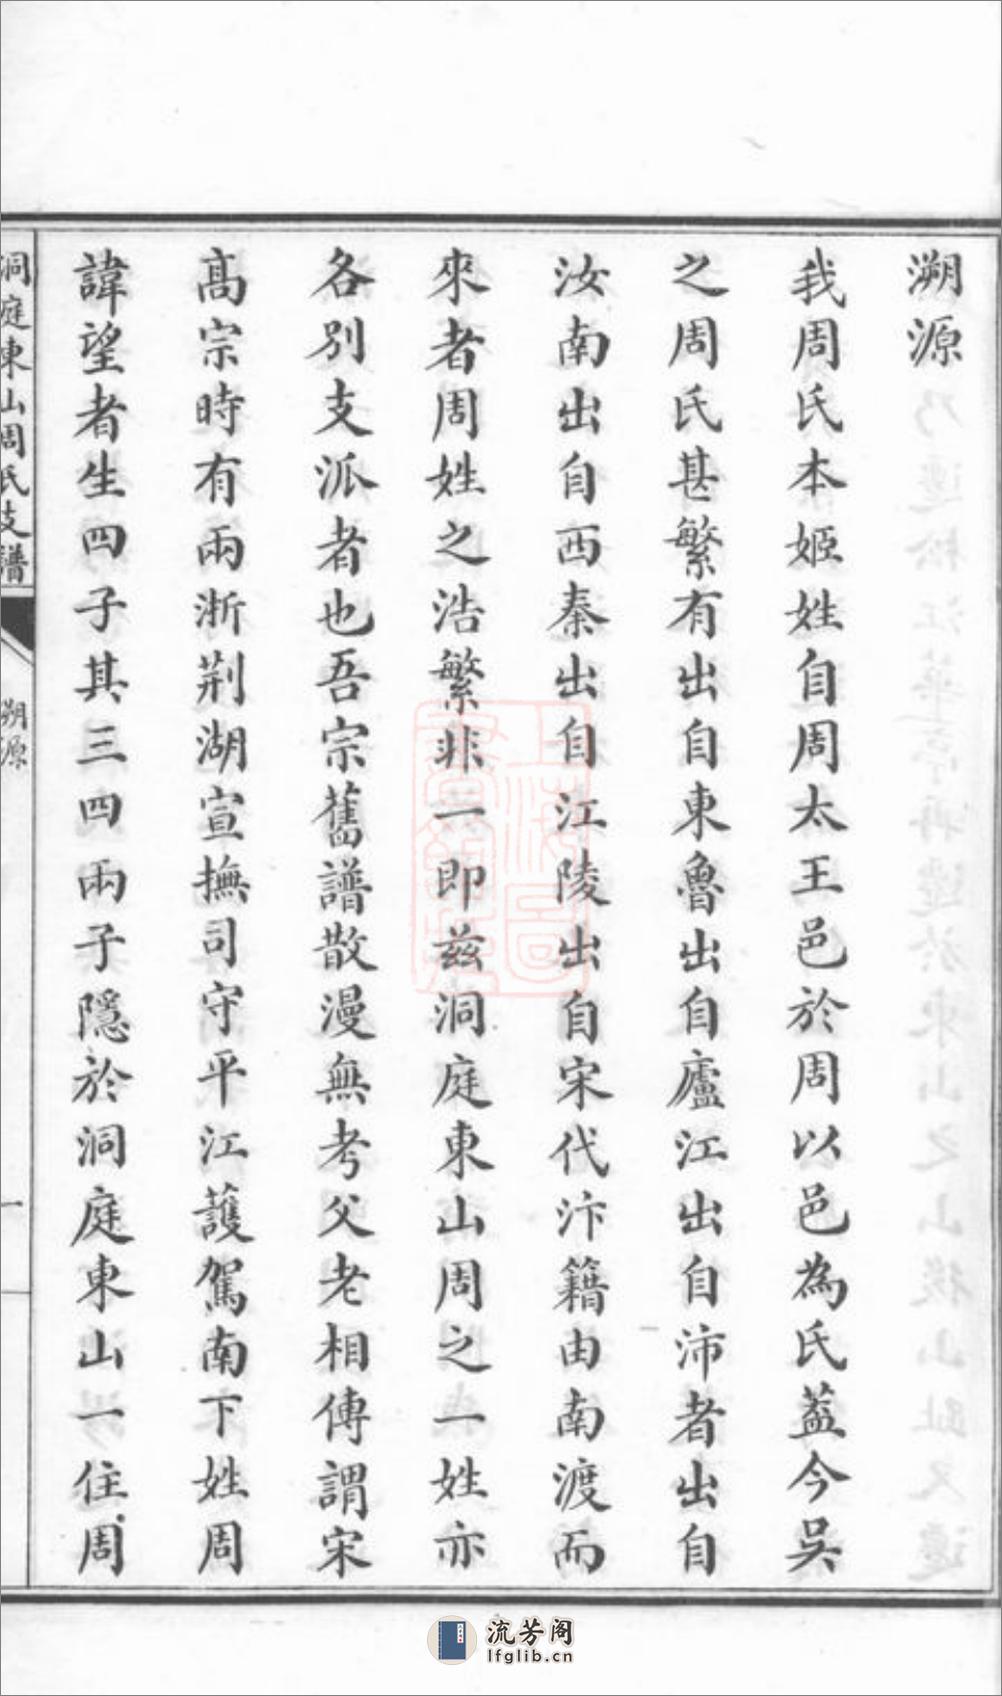 溯源
我周氏本姬姓自周太王邑於周以邑為氏葢今吳
之周氏甚繁有出自東魯出自廬江出自沛者出自
汝南出自西秦出自江陵出自宋代汴籍由南渡而
來者周姓之浩繁非一即兹洞庭東山周之一姓亦
各別支派者也吾宗舊譜散漫無考父老相傳謂宋
高宗時有兩浙荆湖宣撫司守平江護駕南下姓周
諱望者生四子其三四兩子隱於洞庭東山一住周
洞庭東山周氏支譜
溯源
一
上海圖
書館藏
流芳阁
lfglib.cn